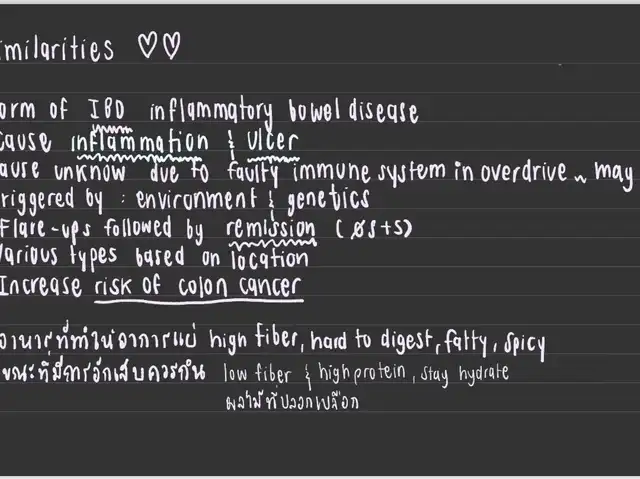 imilarities ♡♡
orm of IBD inflammatory bowel disease
cause inflammation & ulcer
ause unknow due to faulty immune system in overdrive ~ may
riggered by : environment & genetics
Flare-ups followed by remission (ØS+S)
Various types based on location
Increase risk of colon cancer
อาหารที่ทำให้อาการแย่ high fiber, hard to digest, fatty, spicy
ขณะที่มีการอักเสบควรกิน low fiber & high protein, stay hydrate
ผลไม้ที่ปลอกเปลือก